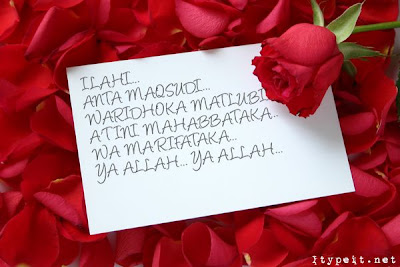 ILAHI...
ANTA MAQSUDI...
WARIDHOKA MATLUBI...
ATINI MAHABBATAKA...
WA MARIFATAKA...
YA ALLAH... YA ALLAH...
Itypeit.net